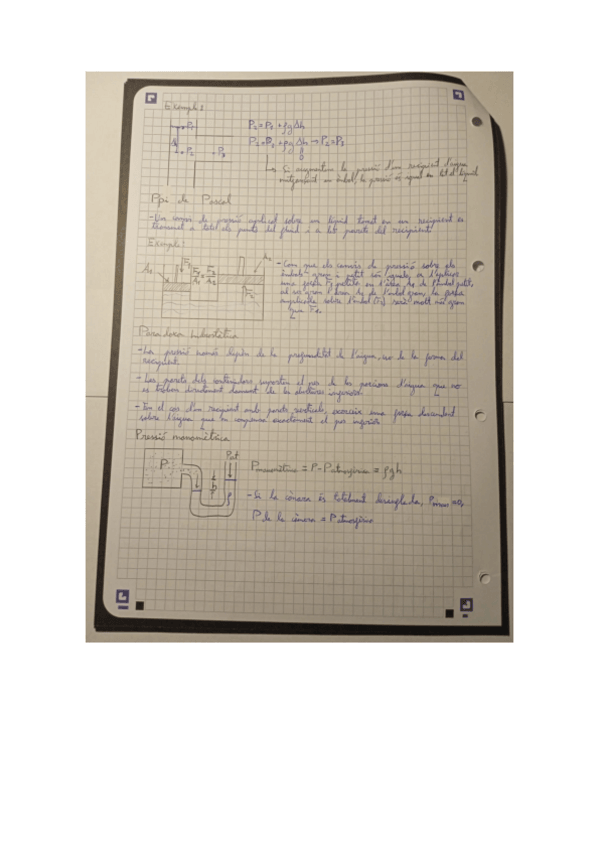 Exemple 2
P₁
P₂ = P₁ + ρgΔh
Δh
P₂
P₃
P₂ = P₃ + ρgΔh → P₂ = P₃
0
Si augmentem la pressió d'un recipient d'aigua
mitjançant un èmbol, la pressió és igual en tot el líquid
Ppi de Pascal
- Un canvi de pressió aplicat sobre un líquid tancat en un recipient es
transmet a tots els punts del fluid i a les parets del recipient.
Exemple:
A₁
F₁
F₁/A₁ = F₂/A₂
A₂
F₂
- Com que els canvis de pressió sobre els
èmbols gran i petit són iguals, en l'aplicar
una força F₁ petita en l'àrea A₁ de l'èmbol petit,
al ser gran l'àrea A₂ de l'èmbol gran, la força
aplicada sobre l'èmbol (F₂) serà molt més gran
que F₁.
Paradoxa hidrostàtica
- La pressió només depèn de la profunditat de l'aigua, no de la forma del
recipient.
- Les parets dels contenidors suporten el pes de les porcions d'aigua que no
es troben directament damunt de les obertures inferiors.
- En el cas d'un recipient amb parets verticals, exerceix una força descendent
sobre l'aigua que compensa exactament el pes
Pressió manomètrica
Pat
P
h
ρ
Pmanomètrica = P - Patmosfèrica = ρgh
- Si la cànara és totalment desinflada, Pman = 0,
P de la cànara = Patmosfèrica